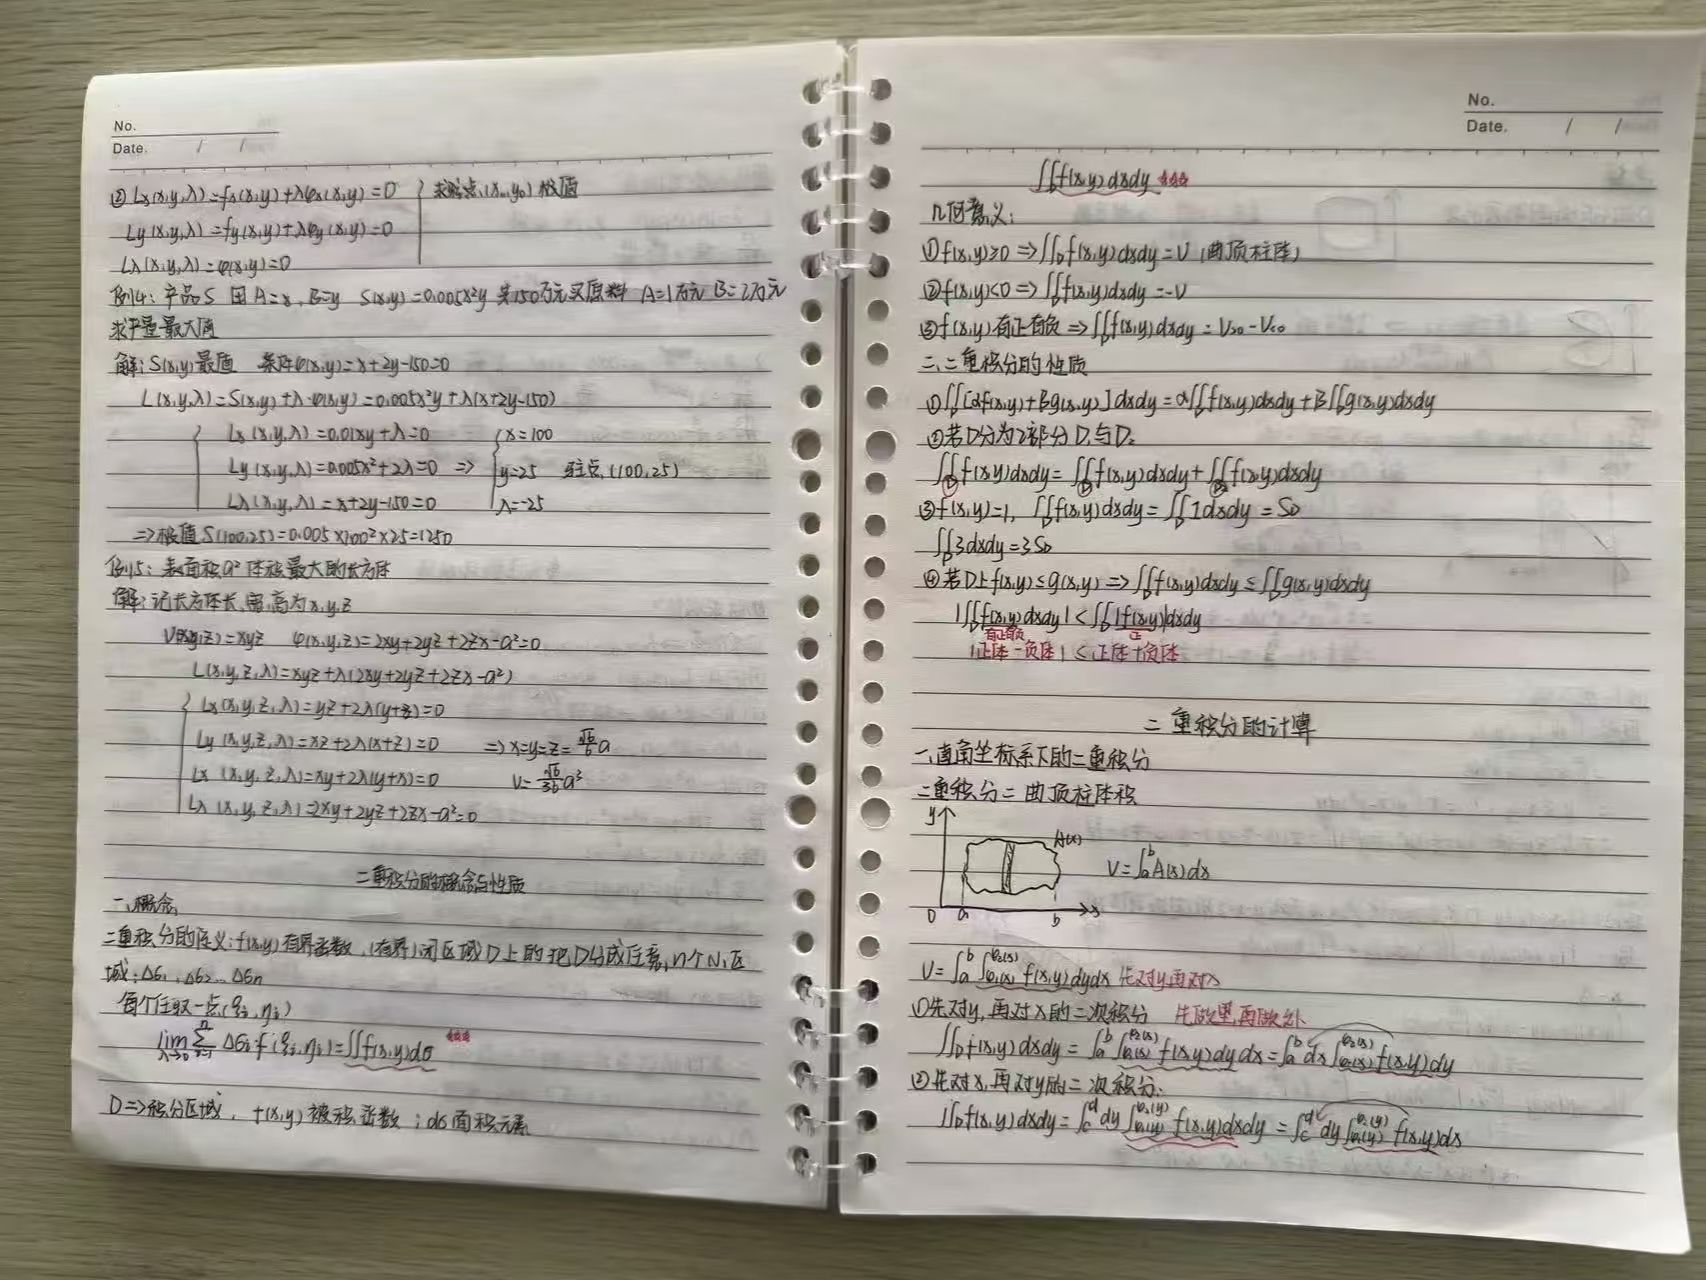 No.
Date. / /
② Lx(x,y,λ)=fx(x,y)+λφx(x,y)=0 } 求驻点(x0,y0)极值
Ly(x,y,λ)=fy(x,y)+λφy(x,y)=0
Lλ(x,y,λ)=φ(x,y)=0
例4: 产品S 用A=x, B=y S(x,y)=0.005x²y 共150万元买原料 A=1万元 B=2万元
求产量最大值
解: S(x,y)最值 条件φ(x,y)=x+2y-150=0
L(x,y,λ)=S(x,y)+λ·φ(x,y)=0.005x²y+λ(x+2y-150)
{ Lx(x,y,λ)=0.01xy+λ=0 { x=100
Ly(x,y,λ)=0.005x²+2λ=0 ⇒ y=25 驻点(100,25)
Lλ(x,y,λ)=x+2y-150=0 λ=-25
⇒极值S(100,25)=0.005×100²×25=1250
例5: 表面积a² 体积最大的长方体
解: 记长方体长,宽,高为x,y,z
V(x,y,z)=xyz φ(x,y,z)=2xy+2yz+2zx-a²=0
L(x,y,z,λ)=xyz+λ(2xy+2yz+2zx-a²)
{ Lx(x,y,z,λ)=yz+2λ(y+z)=0
Ly(x,y,z,λ)=xz+2λ(x+z)=0 ⇒x=y=z=√6/6 a
Lx(x,y,z,λ)=xy+2λ(y+x)=0 V=√6/36 a³
Lλ(x,y,z,λ)=2xy+2yz+2zx-a²=0
二重积分的概念与性质
一、概念
二重积分的定义: f(x,y)有界函数,(有界)闭区域D上的 把D分成任意n个小区
域: Δσ1, Δσ2... Δσn
每个任取一点(ξi,ηi)
lim λ→0 Σ(i=1→n) Δσi·f(ξi,ηi)=∬f(x,y)dσ ☆☆☆
D⇒积分区域, f(x,y)被积函数; dσ面积元素
No.
Date. / /
∬D f(x,y)dxdy ☆☆☆
几何意义:
①f(x,y)≥0 ⇒∬D f(x,y)dxdy=V (曲顶柱体)
②f(x,y)<0 ⇒∬D f(x,y)dxdy=-V
③f(x,y)有正有负 ⇒∬D f(x,y)dxdy=V>0-V<0
二、二重积分的性质
①∬D[αf(x,y)+βg(x,y)]dxdy=α∬D f(x,y)dxdy+β∬D g(x,y)dxdy
②若D分为2部分D1与D2
∬D f(x,y)dxdy=∬D1 f(x,y)dxdy+∬D2 f(x,y)dxdy
③f(x,y)=1, ∬D f(x,y)dxdy=∬D 1dxdy=SD
∬D 3dxdy=3SD
④若D上f(x,y)≤g(x,y) ⇒∬D f(x,y)dxdy≤∬D g(x,y)dxdy
|∬D f(x,y)dxdy|<∬D|f(x,y)|dxdy
有正有负 正
|正体-负体|<正体+负体
二重积分的计算
一、直角坐标系下的二重积分
二重积分=曲顶柱体积
y A(x)
V=∫a^b A(x)dx
0 a b x
V=∫a^b ∫φ1(x)^φ2(x) f(x,y)dydx 先对y再对x
①先对y,再对x的二次积分 先做里再做外
∬D f(x,y)dxdy=∫a^b ∫φ1(x)^φ2(x) f(x,y)dydx=∫a^b dx∫φ1(x)^φ2(x) f(x,y)dy
②先对x,再对y的二次积分.
∬D f(x,y)dxdy=∫c^d dy∫φ1(y)^φ2(y) f(x,y)dxdy=∫c^d dy∫φ1(y)^φ2(y) f(x,y)dx